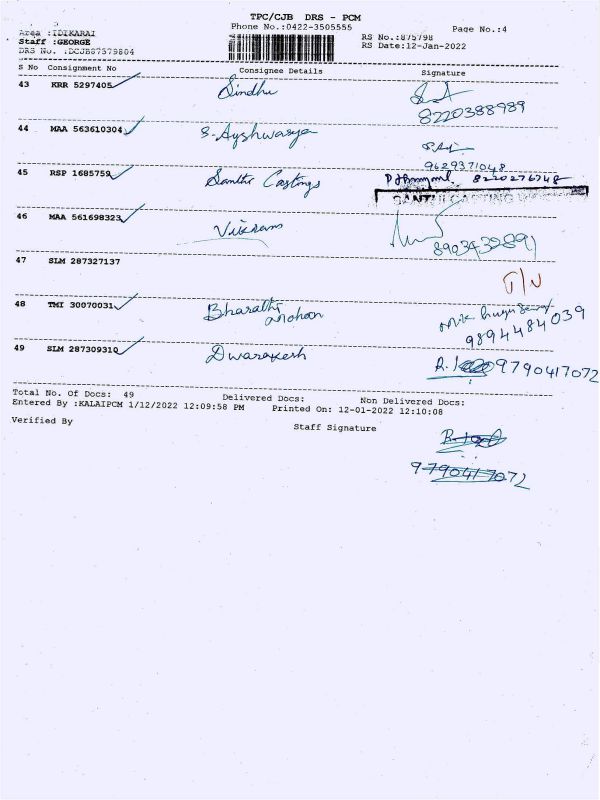 TPC/CJB DRS - PCM
Phone No.:0422-3505555 Page No.:4
Area :IDIKARAI RS No.:875798
Staff :GEORGE RS Date:12-Jan-2022
DRS No. :DCJB87579804
S No Consignment No Consignee Details Signature
43 KRR 5297405 Sindhu
8220388989
44 MAA 563610304 S. Ayshwarya
9629371048
45 RSP 1685759 Santhi Castings 8220276748
SANTHI CASTING
46 MAA 561698323 Vikram
8903432891
47 SLM 287327137
48 TMI 30070031 Bharathi
Mohan
9894484039
49 SLM 287309310 Dwarakesh 9790417072
Total No. Of Docs: 49 Delivered Docs: Non Delivered Docs:
Entered By :KALAIPCM 1/12/2022 12:09:58 PM Printed On: 12-01-2022 12:10:08
Verified By Staff Signature
9790417072